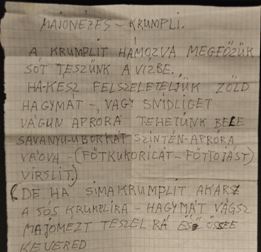 MAJONÉZES - KRUMPLI.
A KRUMPLIT HÁMOZVA MEGFŐZÜK
SÓT TESZÜNK A VIZBE.
HA KÉSZ FELSZELETELJÜK ZÖLD
HAGYMÁT -, VAGY SNIDLIGET
VÁGUN APRÓRA TEHETÜNK BELE
SAVANYU-UBORKÁT SZINTÉN-APRÓRA
VÁGVA (FŐTKUKORICÁT-FŐTTOJÁST)
VIRSLIT,)
(DE HA SIMA KRUMPLIT AKARSZ
A SÓS KRUMPLIRA - HAGYMÁT VÁGSZ
MAJONEZT TESZEL RÁ ÉS ÖSSZE
KEVERED